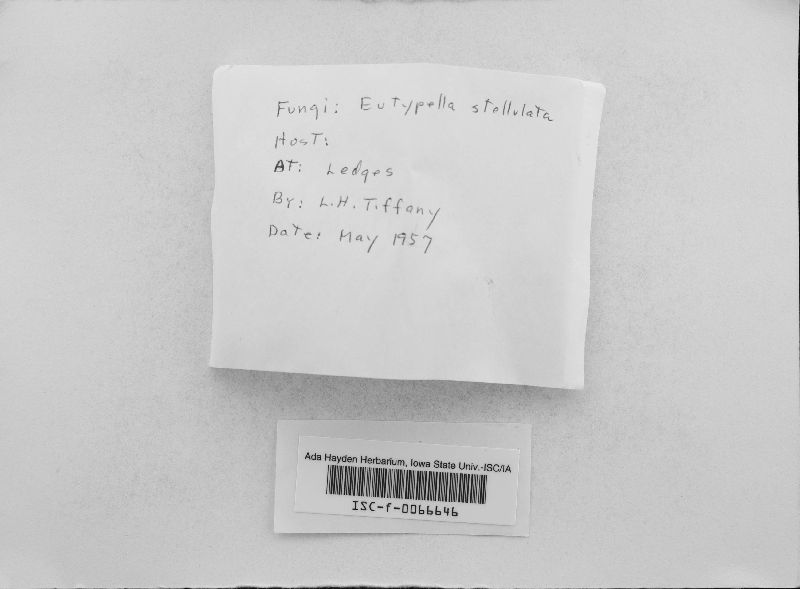 Fungi: Eutypella stellulata
Host:
At: Ledges
By: L.H. Tiffany
Date: May 1957
Ada Hayden Herbarium, Iowa State Univ.-ISC/IA
ISC-f-0066646